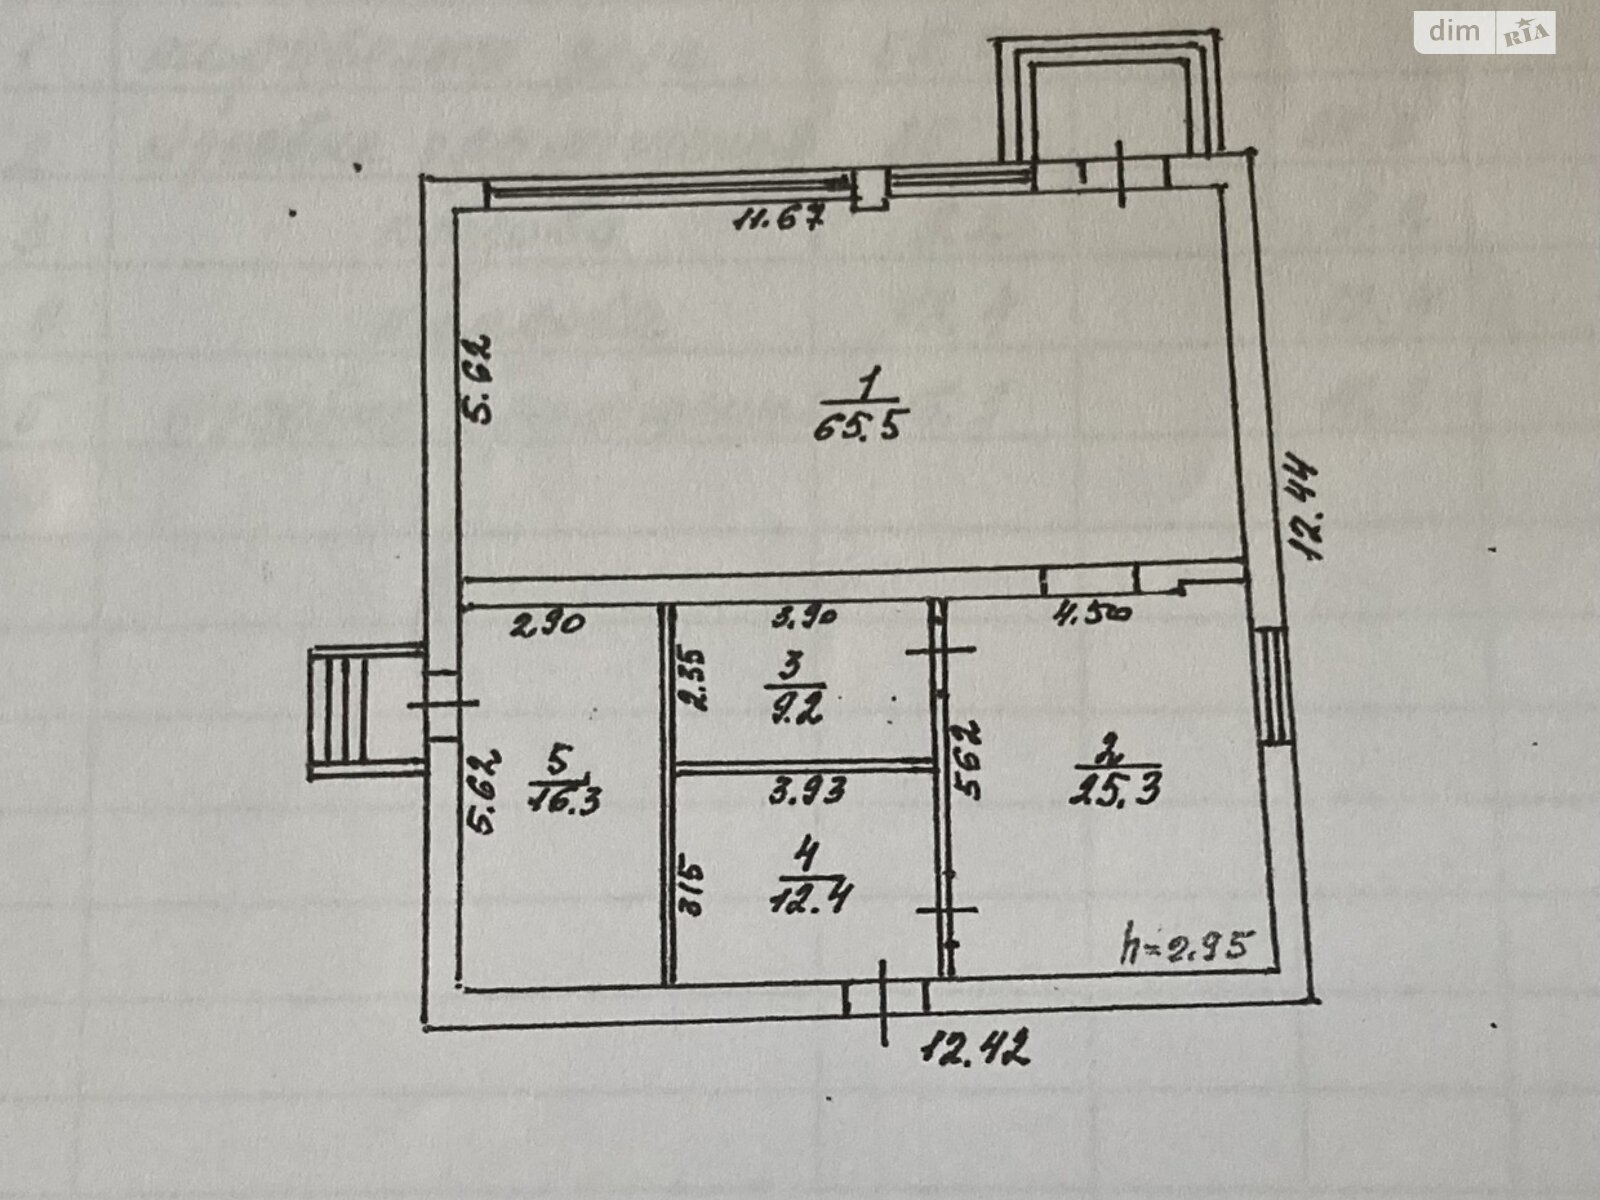 dim RIA
11.67
5.62
1
65.5
12.44
2.90
3.90
4.50
2.35
3
9.2
5.62
5
16.3
3.93
562
2
25.3
315
4
12.4
h=2.95
12.42